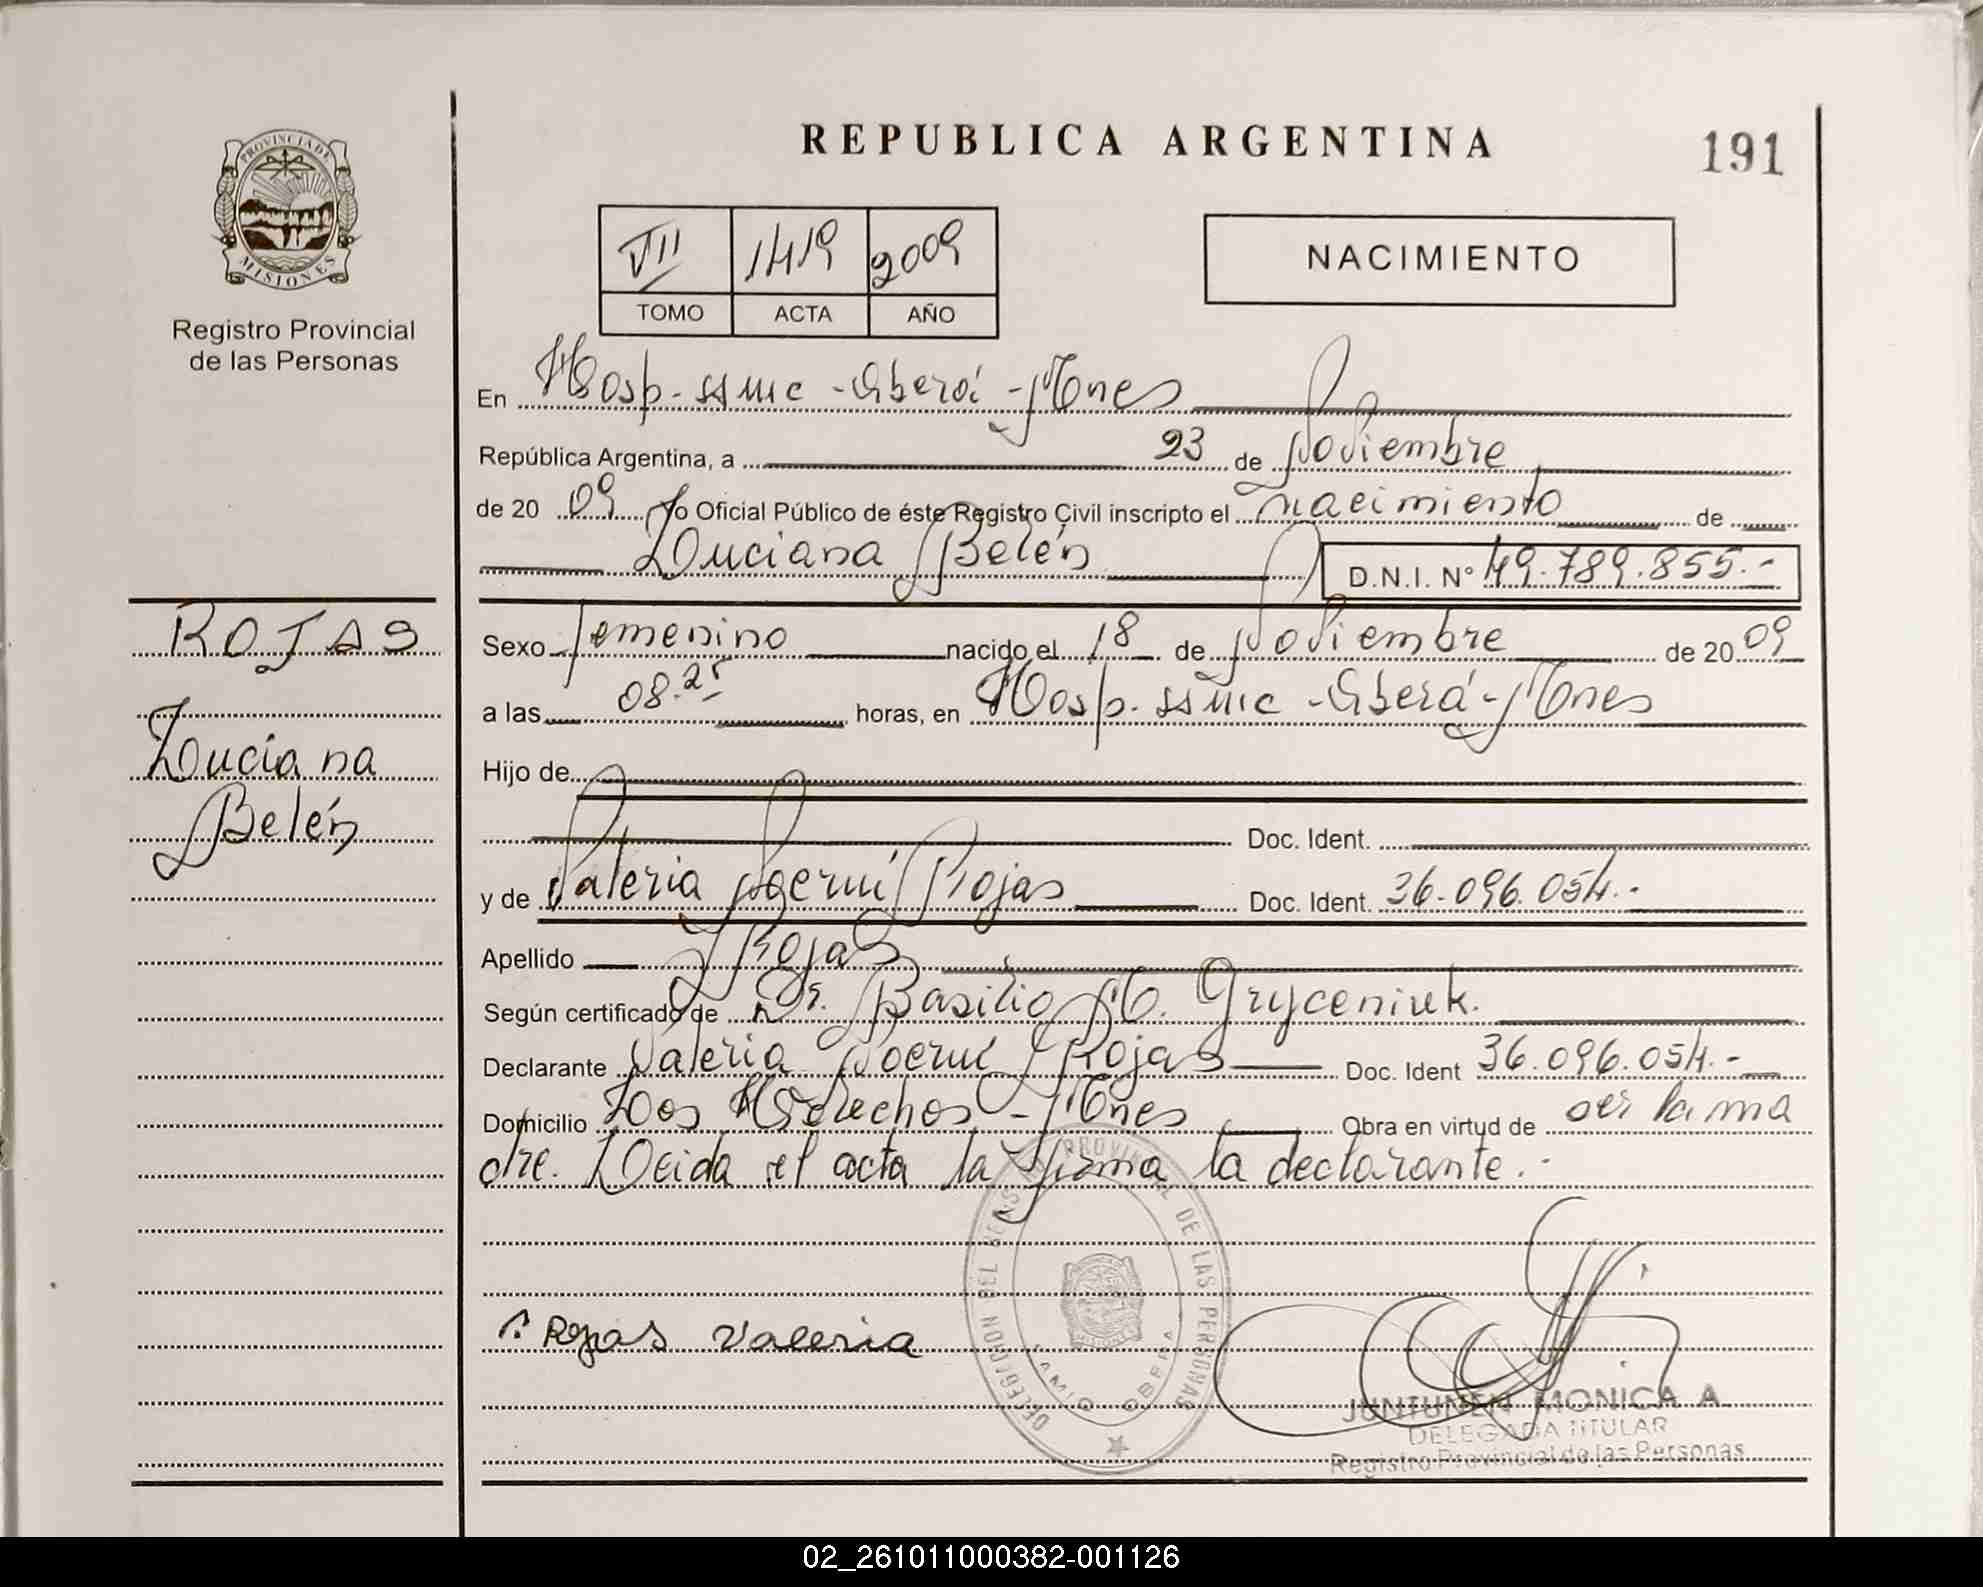 REPUBLICA ARGENTINA
191
PROVINCIA DE
MISIONES
Registro Provincial
de las Personas
VII 1419 2009
TOMO ACTA AÑO
NACIMIENTO
En Hosp. SAMIC - Oberá - Mnes
República Argentina, a 23 de Noviembre
de 20 09 Yo Oficial Público de éste Registro Civil inscripto el nacimiento de
Luciana Belén D.N.I. N° 49.789.855.-
ROJAS
Luciana
Belén
Sexo femenino nacido el 18 de Noviembre de 20 09
a las 08.25 horas, en Hosp. SAMIC - Oberá - Mnes
Hijo de
Doc. Ident.
y de Valeria Noemí Rojas Doc. Ident. 36.096.054.-
Apellido Rojas
Según certificado de Dr. Basilio M. Gryceniuk.
Declarante Valeria Noemí Rojas Doc. Ident 36.096.054.-
Domicilio Los Helechos - Mnes Obra en virtud de ser la ma
dre. Leida el acta la firma la declarante.-
DELEGACION DEL REGISTRO PROVINCIAL DE LAS PERSONAS
MISIONES
Rojas Valeria
JUNTUNEN MONICA A.
DELEGADA TITULAR
Registro Provincial de las Personas
02_261011000382-001126